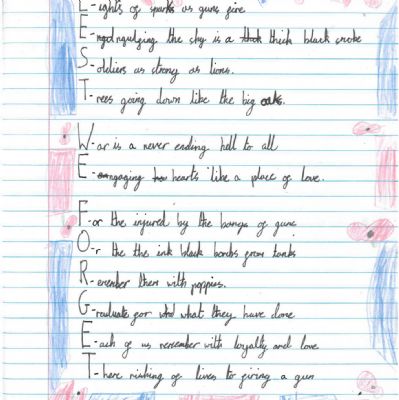 L-ights of sparks as guns fire
E-ngdngulging the sky is a thick black smoke
S-oldiers as strong as lions.
T-rees going down like the big oaks.
W-ar is a never ending hell to all
E-engaging hearts like a place of love.
F-or the injured by the bangs of guns
O-r the the ink black bombs from tanks
R-emember them with poppies.
G-raduate for what they have done
E-ach of us remember with loyalty and love
T-here risking of lives to firing a gun